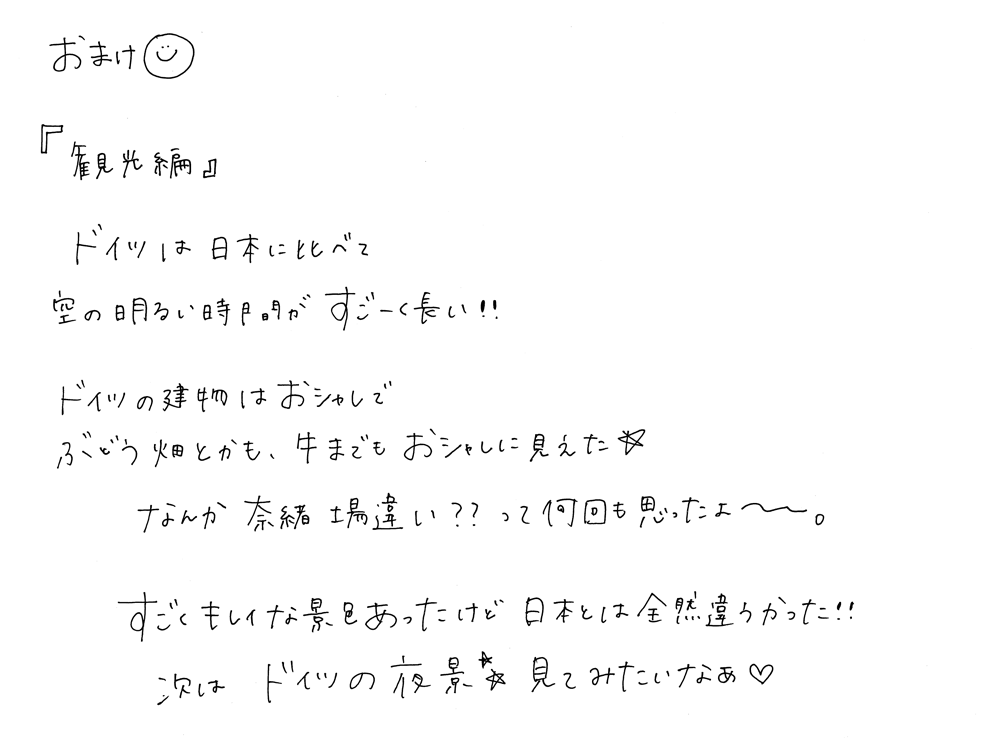 おまけ☺
『観光編』
ドイツは日本に比べて
空の明るい時間がすごーく長い!!
ドイツの建物はおシャレで
ぶどう畑とかも、牛までもおシャレに見えた☆
なんか奈緒場違い??って何回も思ったよ〜〜。
すごくキレイな景色あったけど日本とは全然違うかった!!
次はドイツの夜景☆☆見てみたいなぁ♡